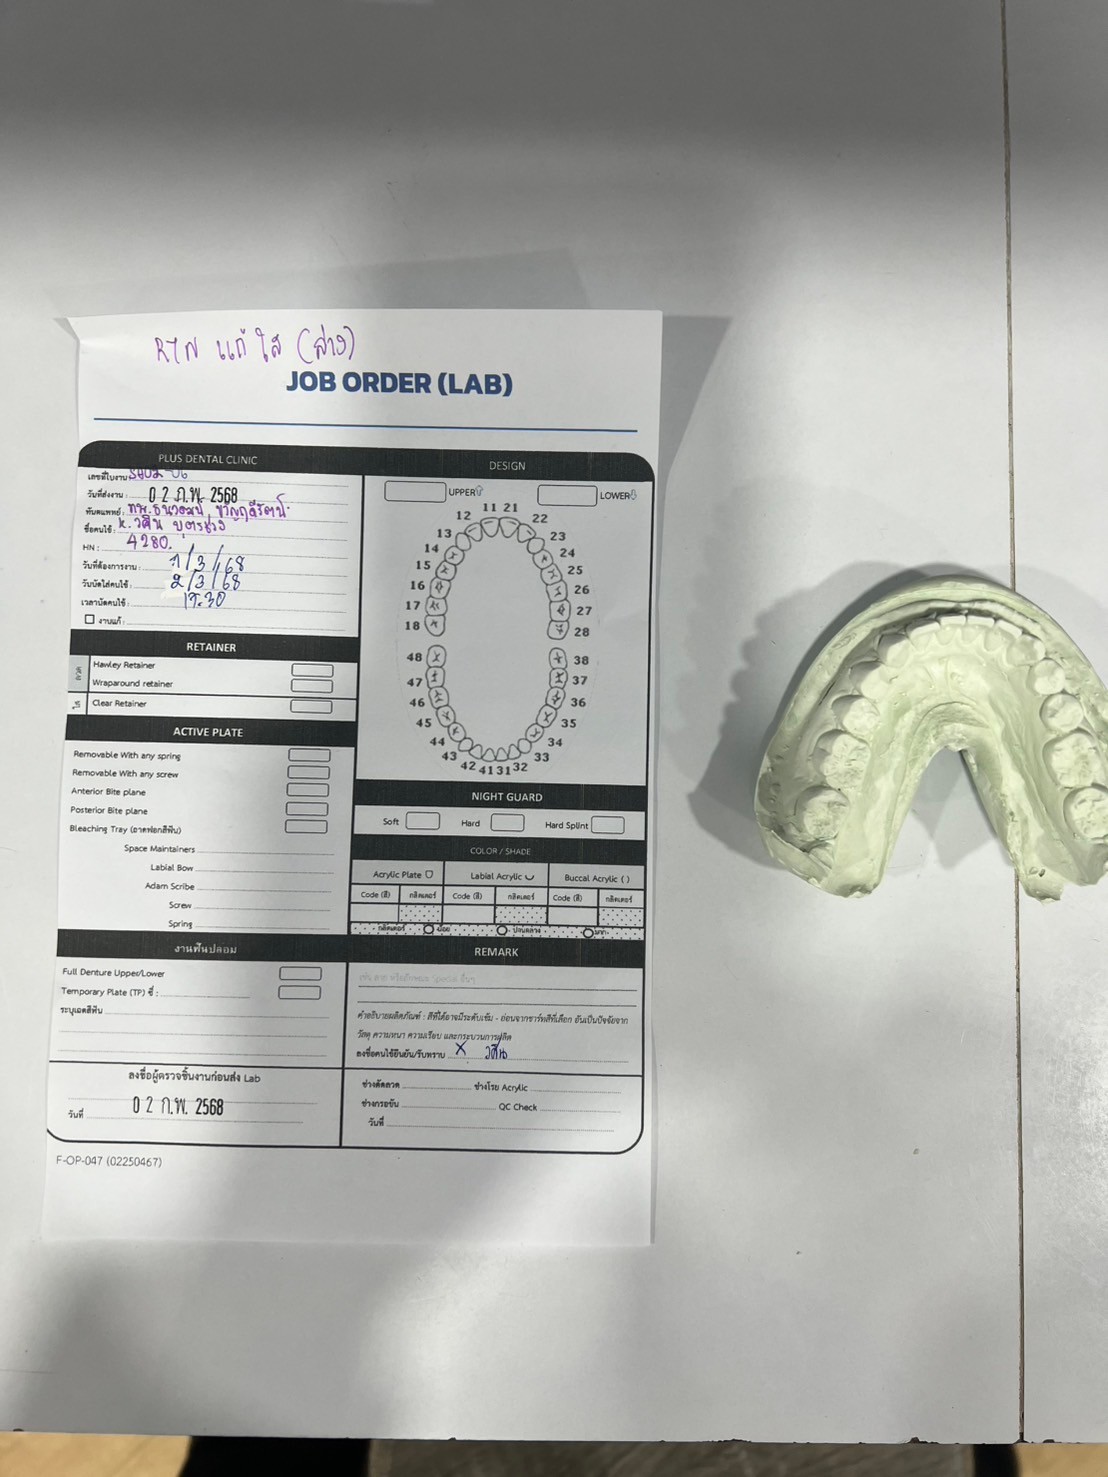 RTN แก้ ใส (ล่าง)
JOB ORDER (LAB)
PLUS DENTAL CLINIC
เลขที่ใบงาน
วันที่ส่งงาน : 02 ก.พ. 2568
ทันตแพทย์: ทพ.ธนวัฒน์
ชื่อคนไข้ : K. วศิน บุตรช่วง
HN : 4280.
วันที่ต้องการงาน : 1/3/68
วันนัดใส่คนไข้ : 2/3/68
เวลานัดคนไข้ : 17.30
งานแก้ :
RETAINER
ลวด
Hawley Retainer
Wraparound retainer
ใส
Clear Retainer
ACTIVE PLATE
Removable With any spring
Removable With any screw
Anterior Bite plane
Posterior Bite plane
Bleaching Tray (ถาดฟอกสีฟัน)
Space Maintainers
Labial Bow
Adam Scribe
Screw
Spring
งานฟันปลอม
Full Denture Upper/Lower
Temporary Plate (TP) ซี่ :
ระบุเฉดสีฟัน
ลงชื่อผู้ตรวจชิ้นงานก่อนส่ง Lab
วันที่ 02 ก.พ. 2568
F-OP-047 (02250467)
DESIGN
UPPER LOWER
11 21
12 22
13 23
14 24
15 25
16 26
17 27
18 28
48 38
47 37
46 36
45 35
44 34
43 33
42 41 31 32
NIGHT GUARD
Soft Hard Hard Splint
COLOR / SHADE
Acrylic Plate Labial Acrylic Buccal Acrylic ( )
Code (สี) กลิตเตอร์ Code (สี) กลิตเตอร์ Code (สี) กลิตเตอร์
กลิตเตอร์ น้อย ปานกลาง มาก
REMARK
คำอธิบายผลิตภัณฑ์ : สีที่ได้อาจมีระดับเข้ม - อ่อนจากชาร์ทสีที่เลือก อันเป็นปัจจัยจาก
วัสดุ ความหนา ความเรียบ และกระบวนการผลิต
ลงชื่อคนไข้ยืนยัน/รับทราบ X วศิน
ช่างดัดลวด ช่างโรย Acrylic
ช่างกรอขัด QC Check
วันที่